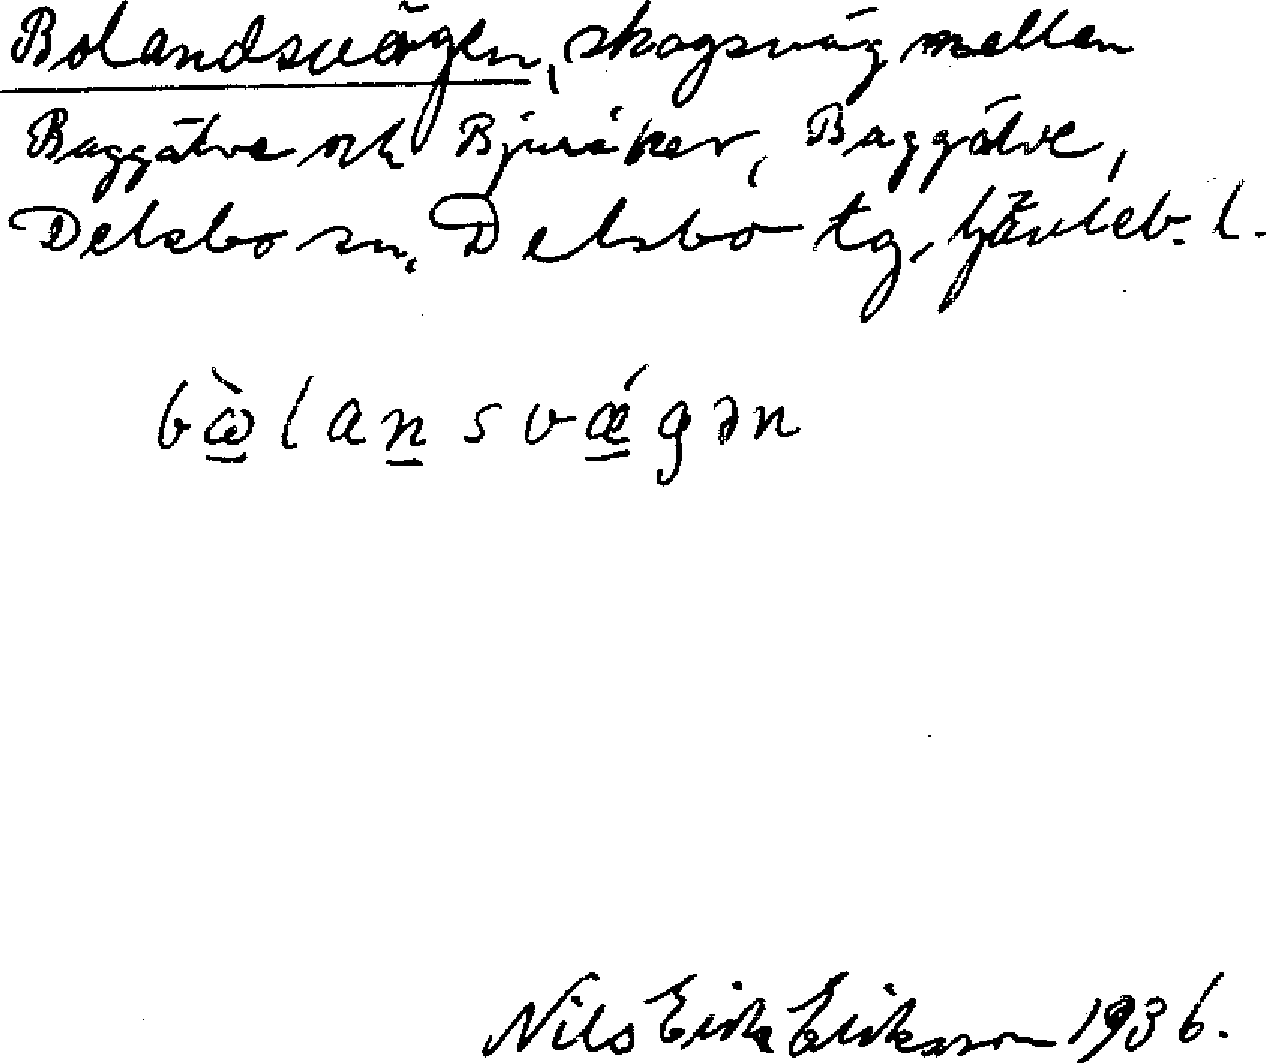 Bolandsvägen, skogsväg mellan
Baggätve och Bjuråker, Baggätve,
Delsbo sn, Delsbo tg, Gävleb. l.
bὼlansvǽgən
Nils Erik Eriksson 1936.